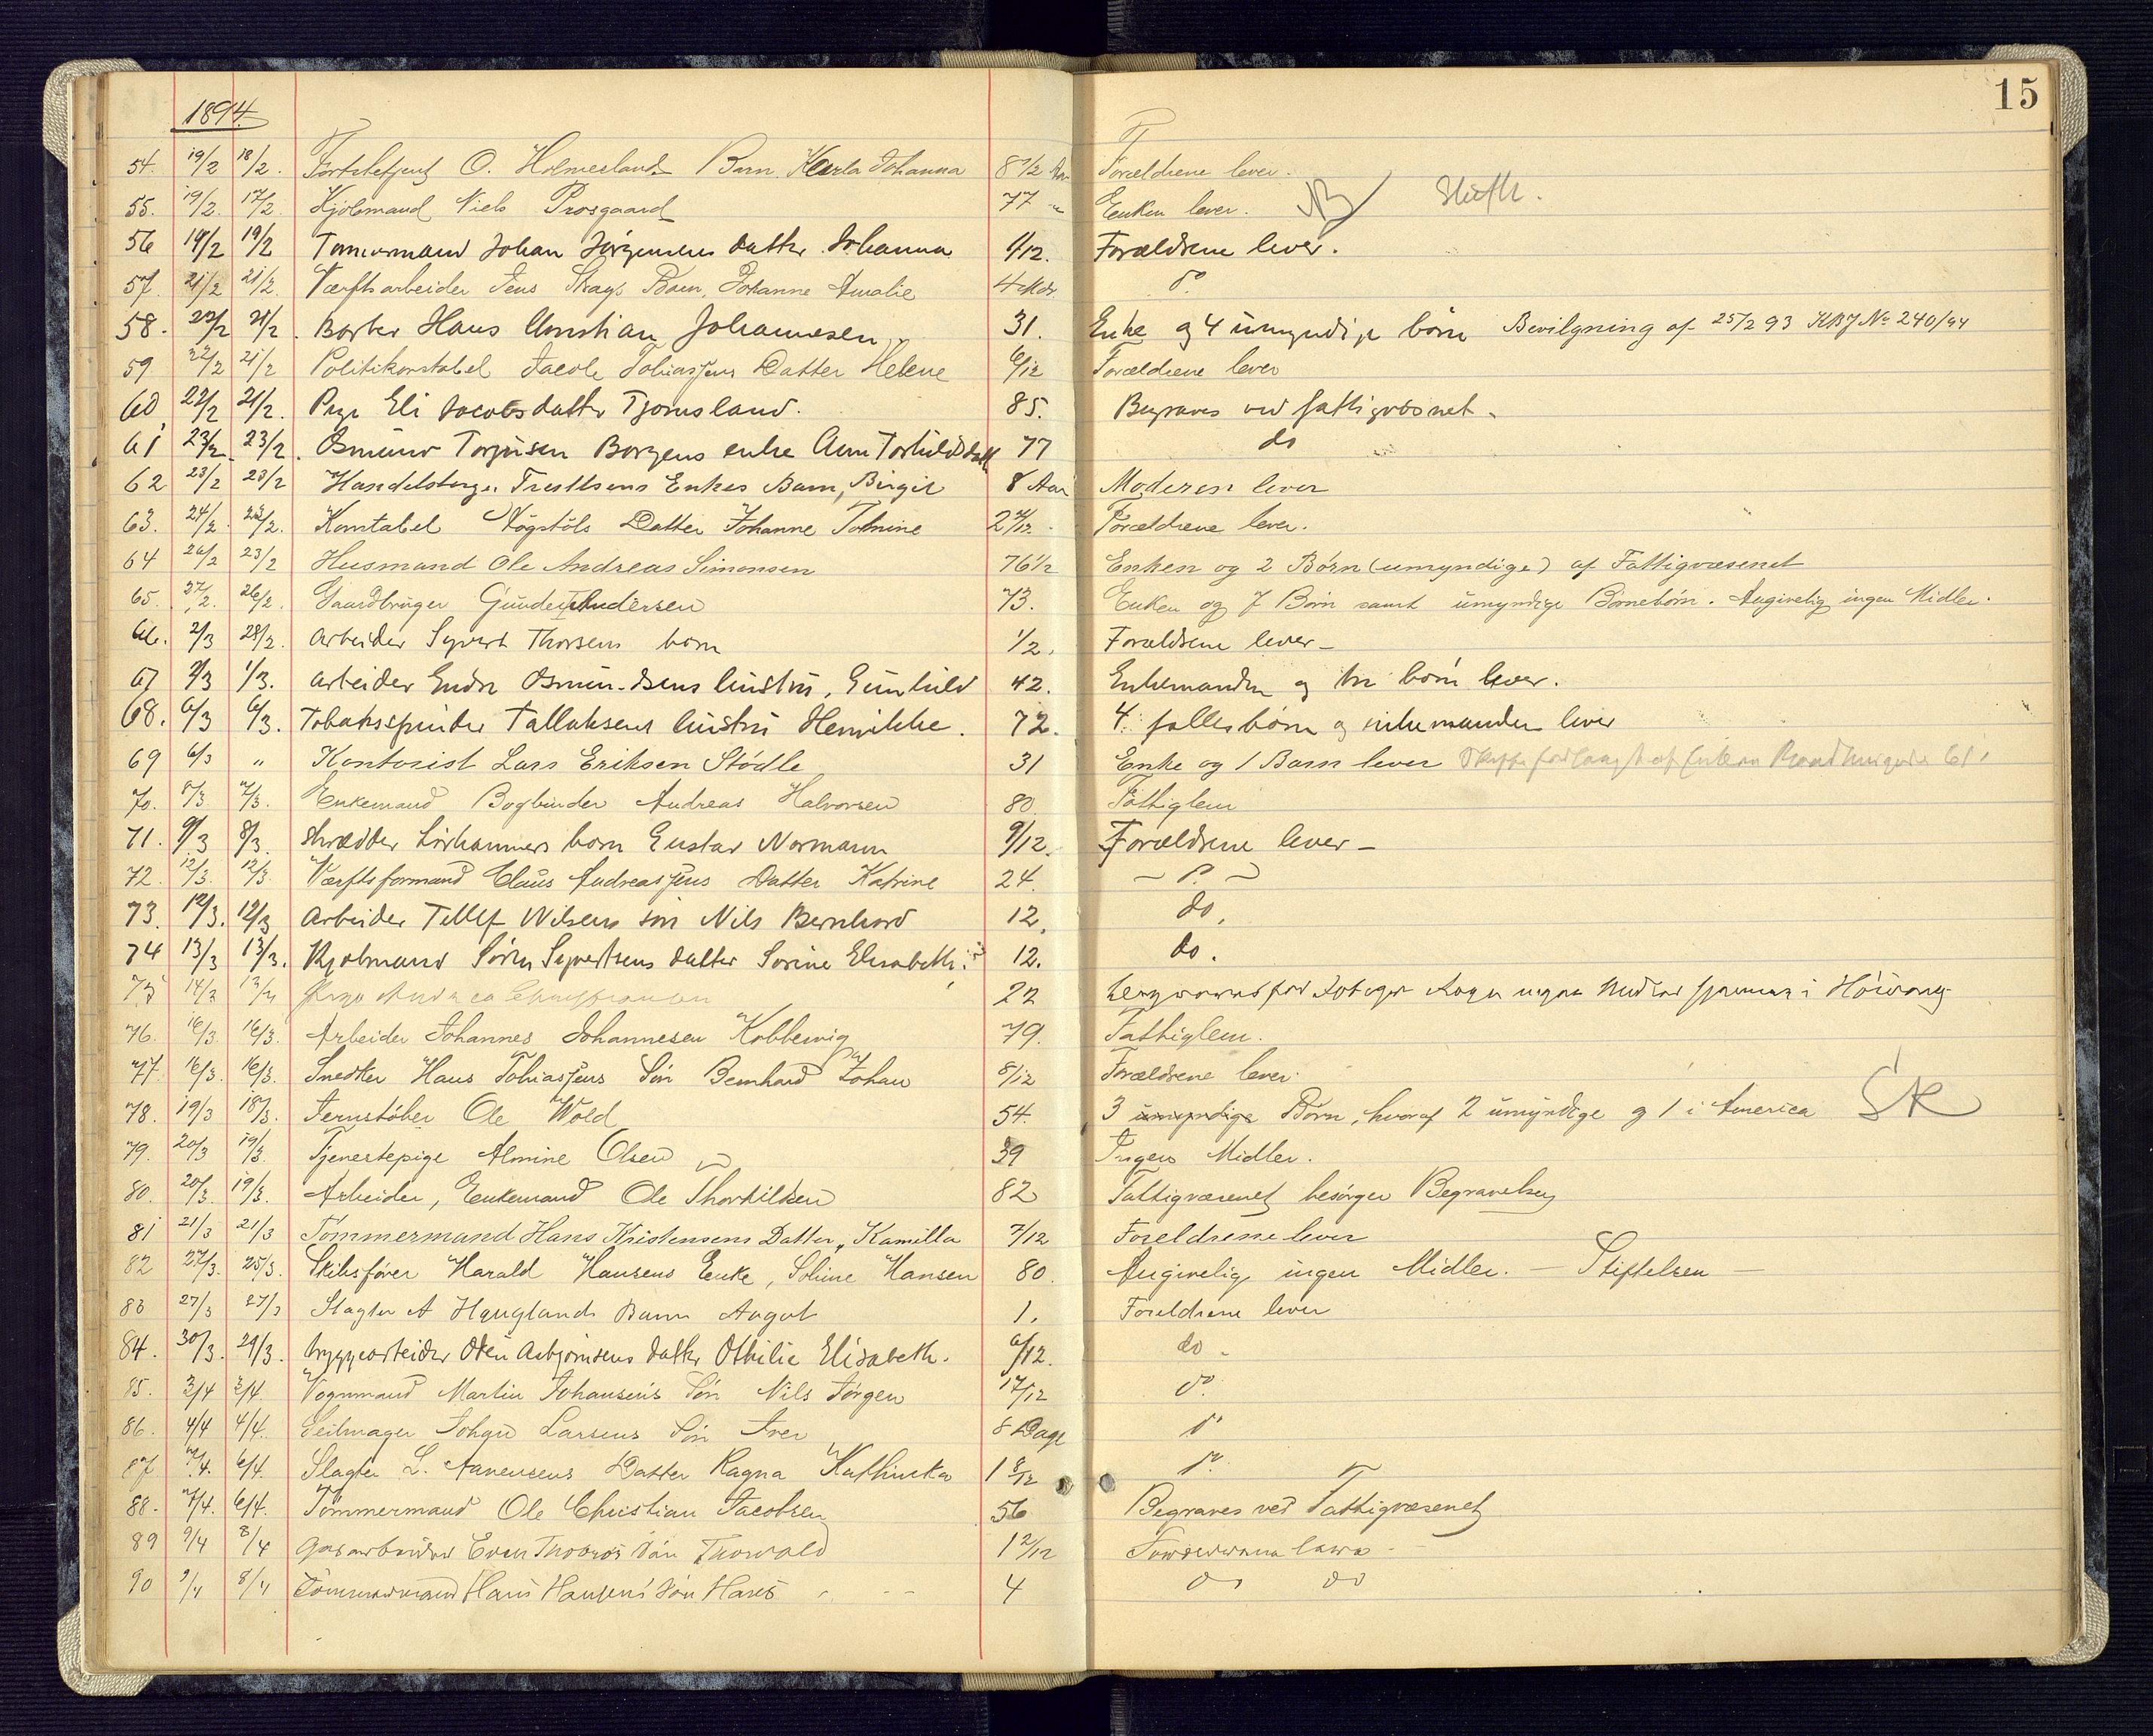 15
1894
54. 19/2 18/2. O. Holmeslands Barn Karla Johanna 8 1/2 Aar Forældrene lever.
55. 19/2. 17/2. Kjølsmand Niels Prosgaard 77 " Enken lever. NB
56 19/2 19/2 Tømmermand Johan Jørgensens datter Johanna 1/12. Forældrene lever.
57. 21/2 21/2. Værftsarbeider Jens Barn, Johanne Amalie 4 Mdr do
58. 22/2 21/2. Barber Hans Christian Johannesen 31. Enke og 4 umyndige børn Bevilgning af 25/2 93 No 240/94
59 22/2 21/2 Politikonstabel Jacob Tobiassens Datter Helene 6/12 Forældrene lever
60 22/2 21/2. Pige Eli Jacobsdatter Tjomsland. 85. Begraves ved fattigvæsnet.
61 23/2. 23/2. Osmund Torjusen Borgens enke Ann Torkildsdatt 77 do
62 23/2 23/2 Enkes Barn, Birgit 8 Aar Moderen lever
63. 24/2. 22/2. Konstabel Datter Johanne 2 Forældrene lever.
64 26/2 23/2 Husmand Ole Andreas Simonsen 76 1/2 Enken og 2 Børn (umyndige) af Fattigvæsenet
65. 27/2. 26/2. Gaardbruger Gunder Andersen 73. Enken og 7 Børn samt umyndige Børnebørn. Angivelig ingen Midler.
66. 2/3 28/2. Arbeider Syvert Thorsens barn 1/2. Forældrene lever
67 2/3 1/3. Arbeider Endre Osmundsens hustru, Gunhild 42. Enkemanden og tre børn lever.
68. 6/3 6/3. Tobaksspinder Tallaksens hustru Henrikke. 72. 4 fællesbørn og enkemanden lever
69 6/3 " Kontorist Lars Eriksen Stødle 31 Enke og 1 Barn lever
70. 8/3 7/3. Enkemand Bogbinder Andreas Halvorsen 80. Fattiglem
71. 9/3 8/3. Skrædder barn Gustav Normann 9/12. Forældrene lever
72. 12/3. 12/3. Værftsformand Claus Andreassens Datter Katrine 24. do
73. 12/3. 12/3 Arbeider Tellef Nilsens søn Nils Bernhard 12. do.
74 13/3 13/3. Kjølmand Søren Syvertsens datter Sorine Elisabeth 12. do.
75 14/3 Pige 22
76. 16/3. 16/3. Arbeider Johannes Johannesen Kobbervig 79. Fattiglem.
77. 16/3. 16/3. Snedker Hans Tobiassens Søn Bernhard Johan 8/12 Forældrene lever.
78. 19/3 18/3. Jernstøber Ole Wold 54. 3 umyndige Børn, hvoraf 2 umyndige og 1 i America SK
79. 20/3 19/3. Tjenestepige Almine Olsen 39 Ingen Midler.
80. 20/3. 19/3. Arbeider, Enkemand Ole Thorkildsen 82 Fattigvæsenet besørger Begravelsen
81 21/3 21/3 Tømmermand Hans Kristensens Datter, Kamilla 7/12 Foreldrene lever
82 27/3. 25/3. Skibsfører Harald Hansens Enke, Soline Hansen 80. Angivelig ingen Midler. – Stiftelsen –
83 27/3 27/3 Slagter A Hauglands Barn Aagot 1. Foreldrene lever
84. 30/3. 29/3. Bryggearbeider datter Othilie Elisabeth. 6/12. do
85. 3/4 3/4. Vognmand Martin Johansens Søn Nils Jørgen 17/12 do
86. 4/4 4/4. Seilmager Johan Larsens Søn 8 Dage do
87 7/4. 6/4. Slagter L. Aanensens Datter Ragna Kathinka 1 8/12 do
88. 7/4. 6/4. Tømmermand Ole Christian Jacobsen 56 Begraves ved Fattigvæsenet
89 9/4 8/4 Gasarbeider Even søn Thorvald 1 2/12 Forældrene lever
90 9/4 8/4 Tømmermand Hans Hansens søn Hans 4 do do